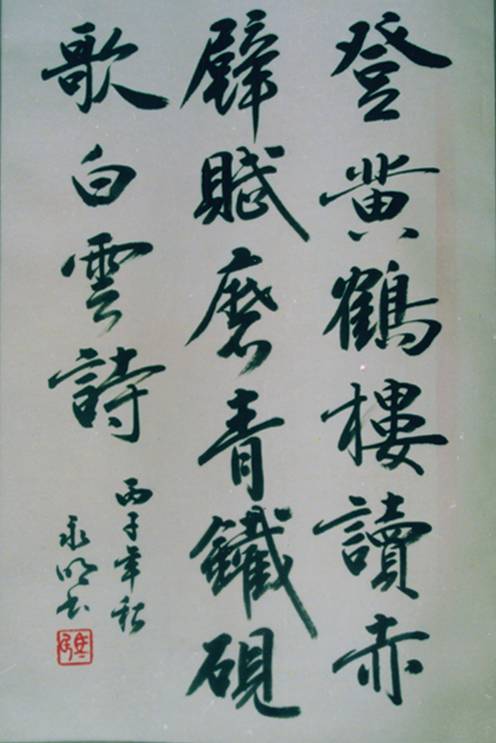 登黄鶴樓讀赤
壁賦磨青鐵硯
歌白雲詩
丙子年秋
永明书